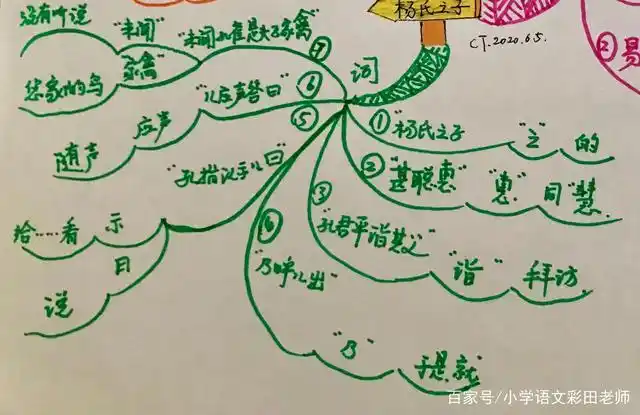 杨氏之子
CT.2020.6.5.
② 易
词
① "杨氏之子" "之" 的
② "甚聪惠" "惠" 同"慧"
③ "孔君平诣其父" "诣" 拜访
④ "乃呼儿出" "乃" 于是就
⑤ "孔指以示儿曰"
示 给……看
曰 说
⑥ "儿应声答曰"
应声 随声
⑦ "未闻孔雀是夫子家禽"
"未闻" 没有听说
"家禽" 您家的鸟
百家号/小学语文彩田老师